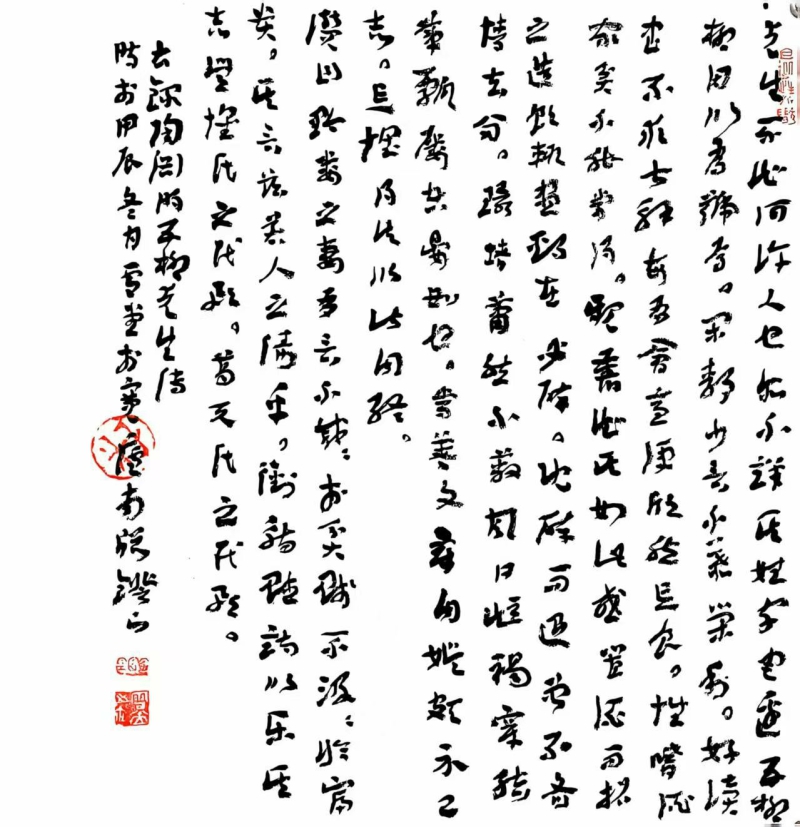 先生不知何許人也亦不詳其姓字宅邊五柳
樹因以為號焉。閑靜少言不慕榮利。好讀
書不求甚解每有會意便欣然忘食。性嗜酒
家貧不能常得。親舊知其如此或置酒而招
之造飲輒盡期在必醉。既醉而退曾不吝
情去留。環堵蕭然不蔽風日短褐穿結
簞瓢屢空晏如也。常著文章自娛頗示己
志。忘懷得失以此自終。
贊曰黔婁之妻有言不戚〻於貧賤不汲〻於富
貴。其言茲若人之儔乎。銜觴賦詩以樂其
志無懷氏之民歟。葛天氏之民歟。
右錄陶淵明五柳先生傳
時於甲辰冬月雪堂於廬南窗鐙下